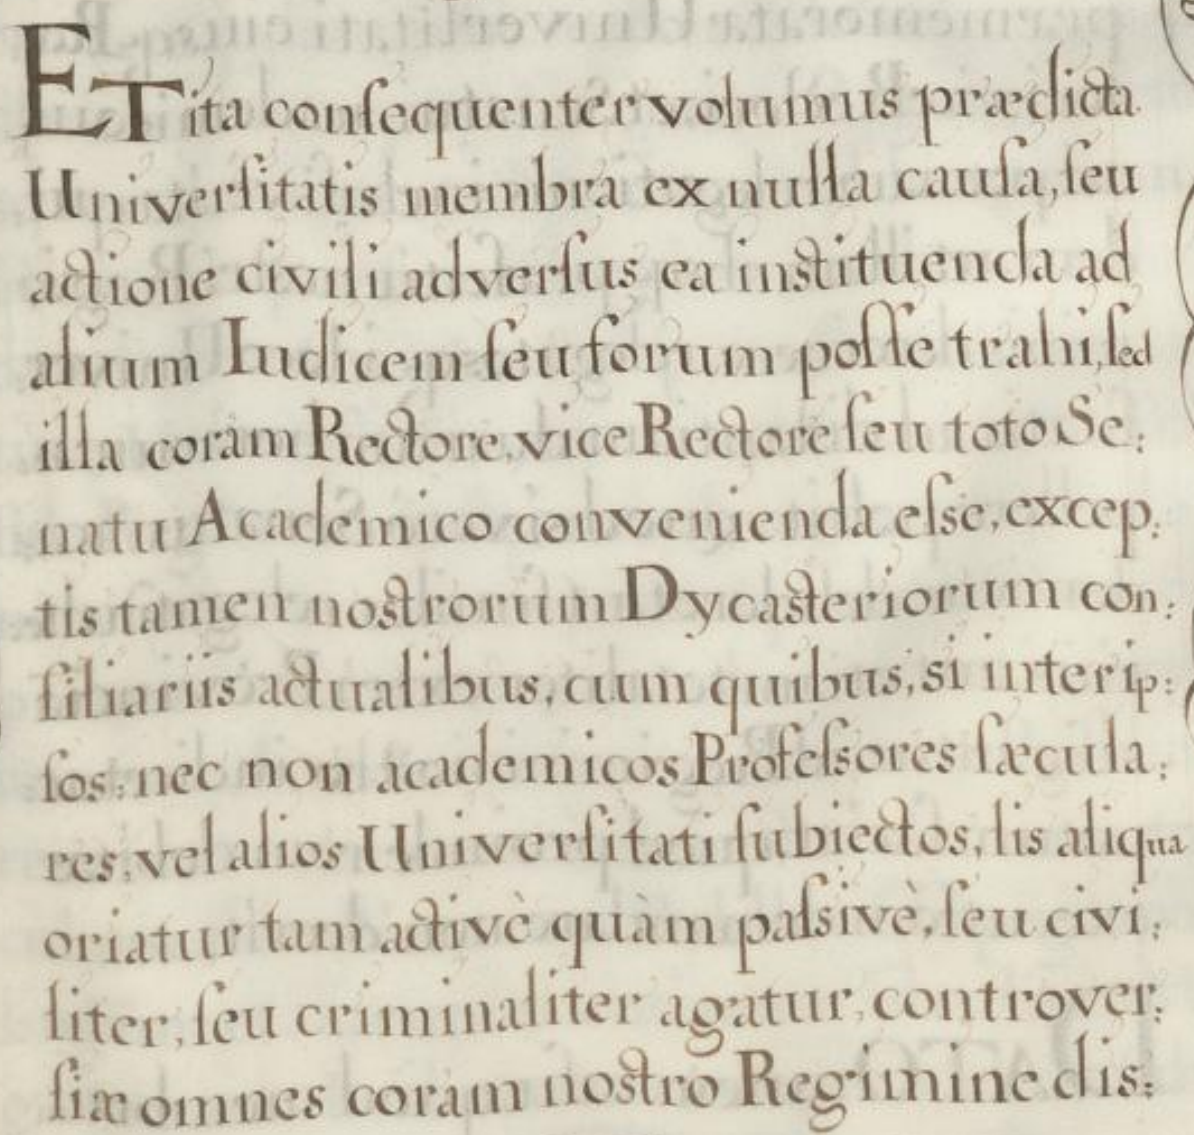 ET ita conſequenter volumus prædicta
Univerſitatis membra ex nulla cauſa, ſeu
actione civili adverſus ea instituenda ad
alium Iudicem ſeu forum poſſe trahi, ſed
illa coram Rectore, vice Rectore ſeu toto Se:
natu Academico convenienda eſse, excep:
tis tamen nostrorum Dycasteriorum con:
ſiliariis actualibus, cum quibus, si inter ip:
ſos: nec non academicos Profeſsores ſæcula:
res, vel alios Univerſitati ſubiectos, lis aliqua
oriatur tam activè quàm paſsivè, ſeu civi:
liter, ſeu criminaliter agatur, controver:
ſiæ omnes coram nostro Regimine dis: